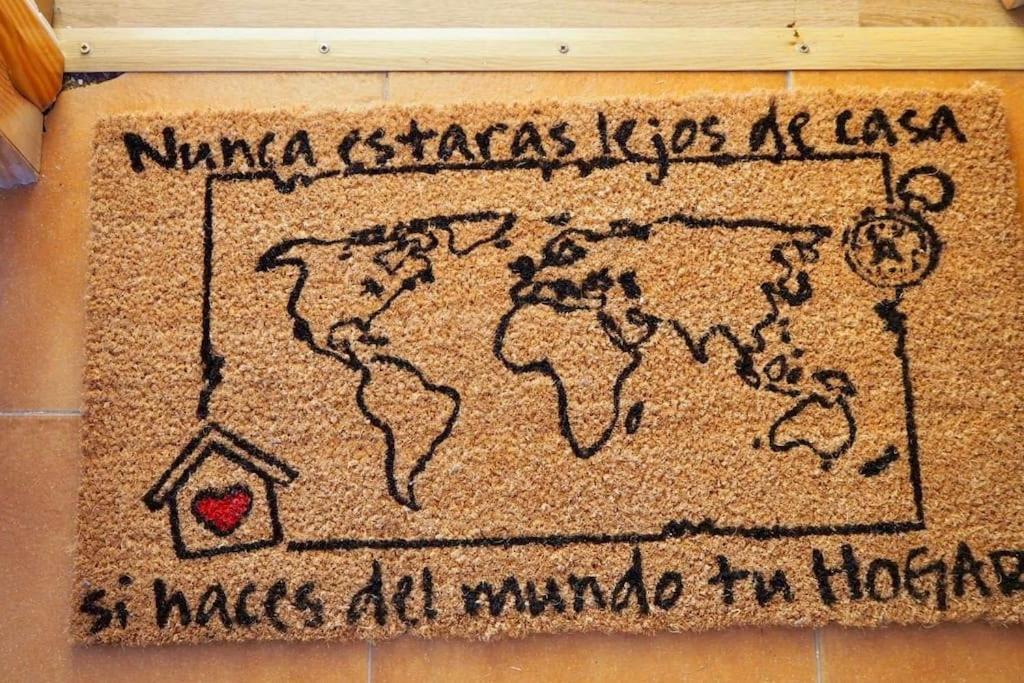 Nunca estaras lejos de casa
si haces del mundo tu HOGAR